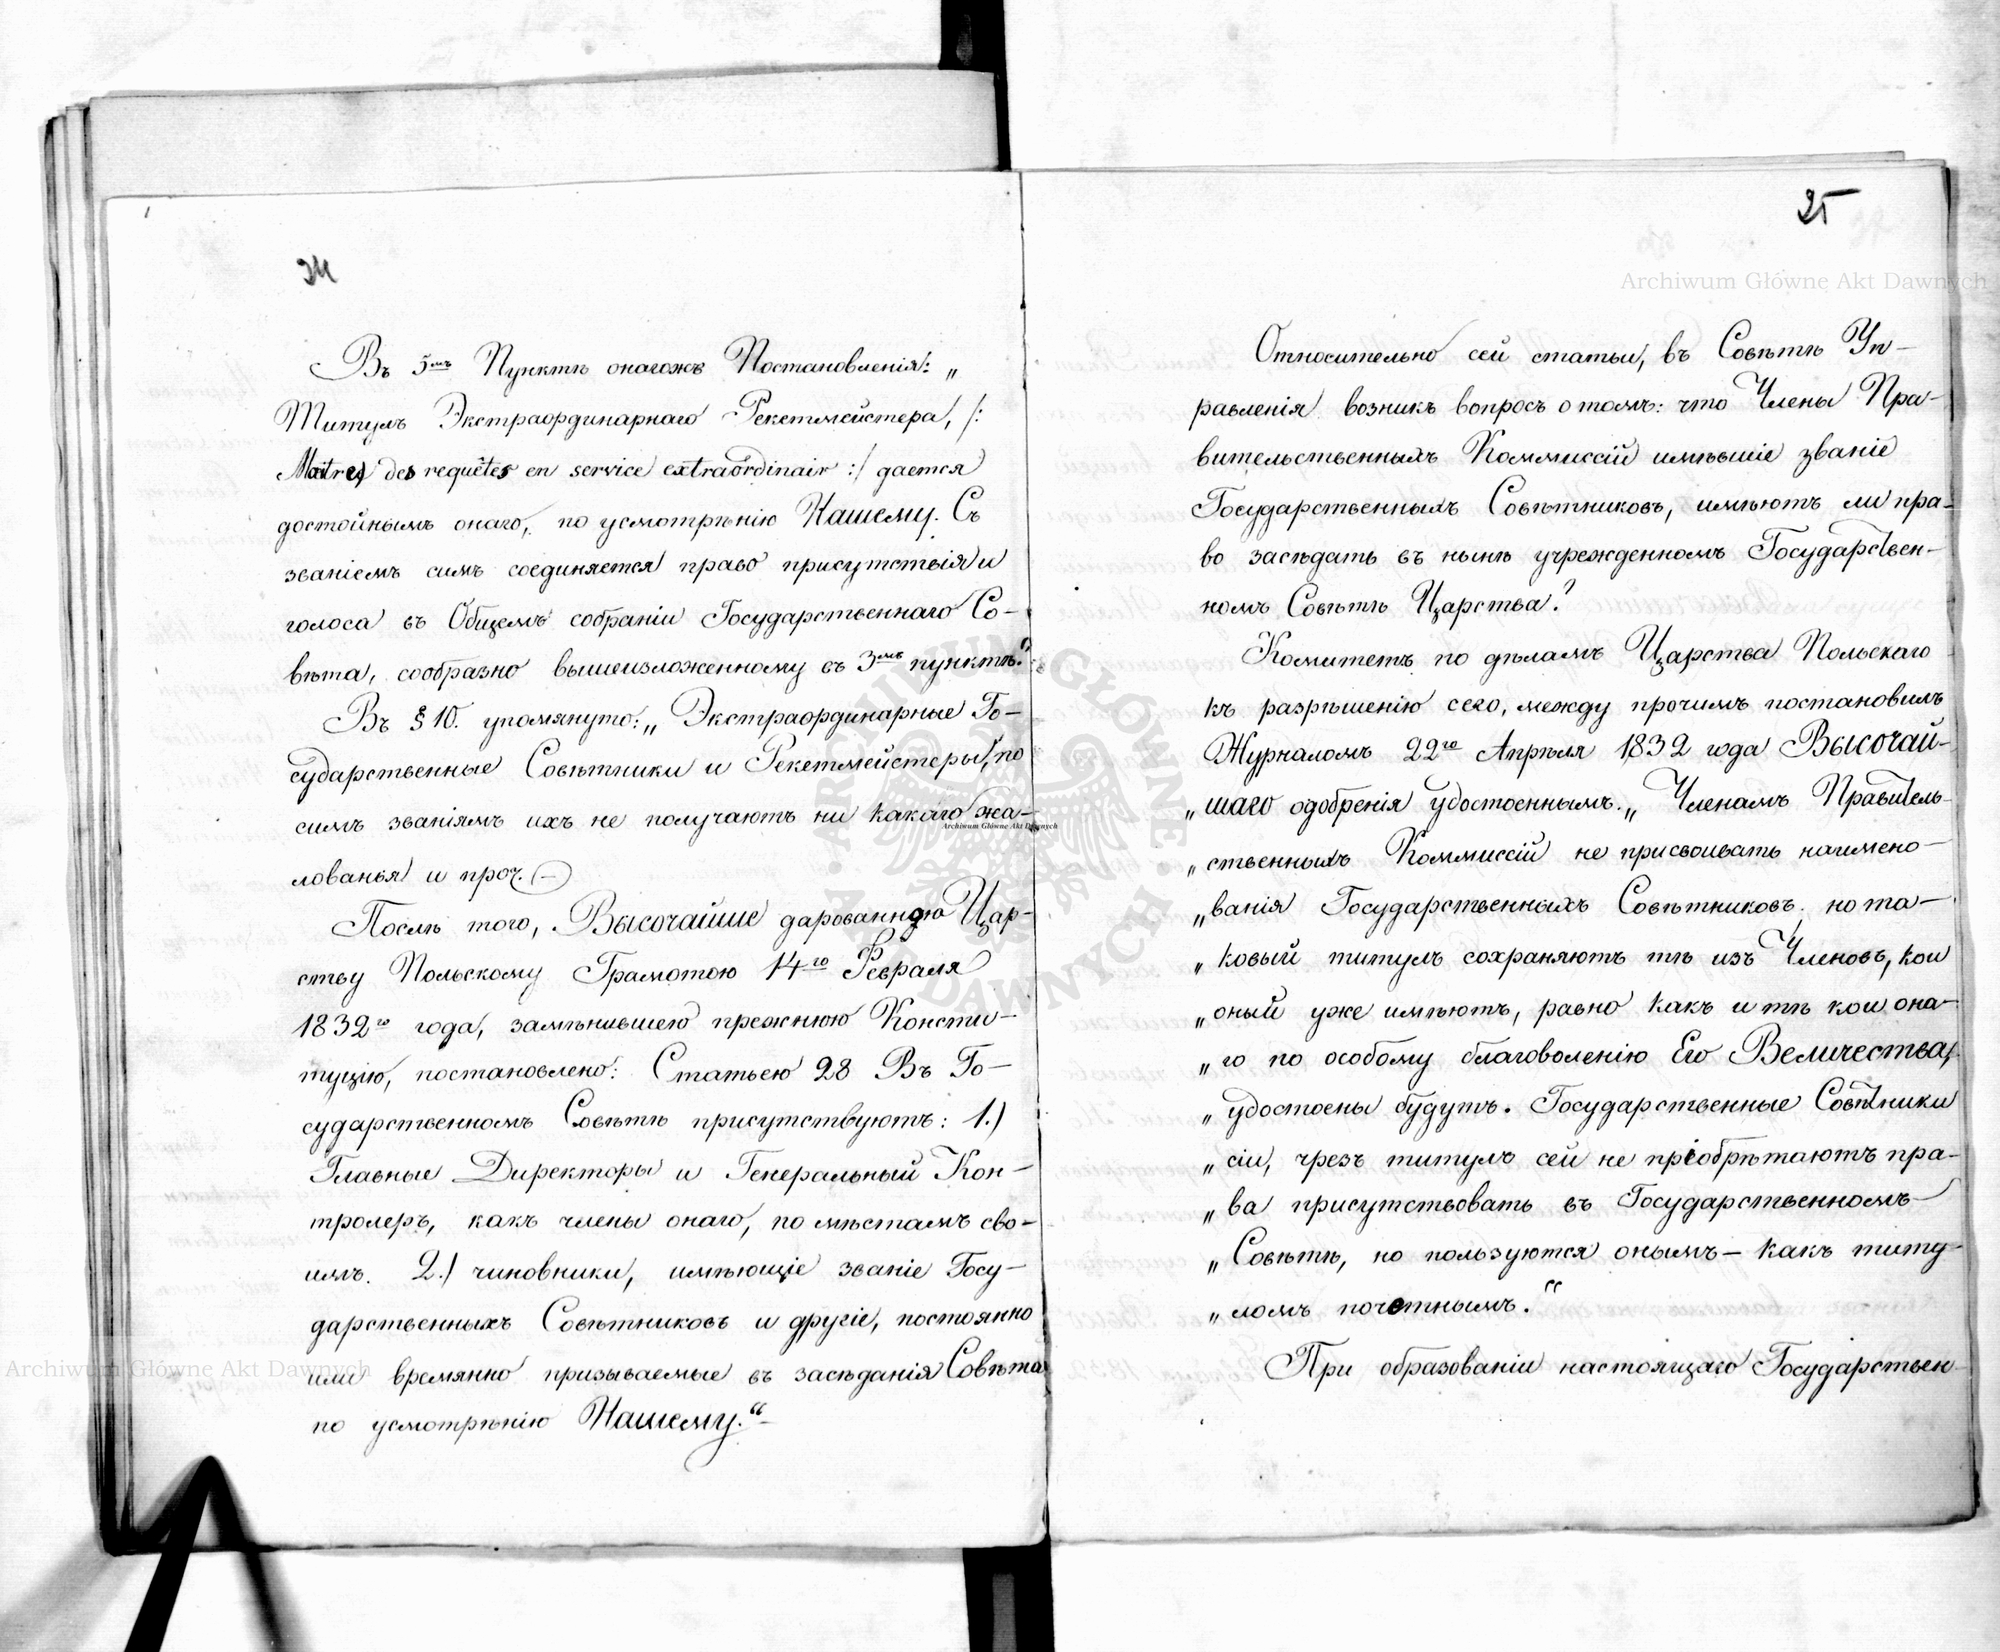 24
Въ 5мъ Пунктѣ онагожъ Постановленія: „
Титулъ Экстраординарнаго Рекетмейстера, /:
Maitres des requêtes en service extraordinair :/ дается
достойнымъ онаго, по усмотрѣнію Нашему. Съ
званіемъ симъ соединяется право присутствія и
голоса въ Общемъ собраніи Государственнаго Со-
вѣта, сообразно вышеизложенному въ 3мъ пунктѣ.“
Въ § 10. упомянуто: „Экстраординарные Го-
сударственные Совѣтники и Рекетмейстеры, по
симъ званіямъ ихъ не получаютъ ни какаго жа-
лованья и проч. (—)
Послѣ того, Высочайше дарованною Цар-
ству Польскому Грамотою 14го Февраля
1832го года, замѣнившею прежнюю Консти-
туцію, постановлено: Статьею 28 Въ Го-
сударственномъ Совѣтѣ присутствуютъ: 1.)
Главные Директоры и Генеральный Кон-
тролеръ, какъ члены онаго, по мѣстамъ сво-
имъ. 2.) чиновники, имѣющіе званіе Госу-
дарственныхъ Совѣтниковъ и другіе, постоянно
или времянно призываемые въ засѣданія Совѣта
по усмотрѣнію Нашему.“—
25
Относительно сей статьи, въ Совѣтѣ Уп-
равленія возникъ вопросъ о томъ: что Члены Пра-
вительственныхъ Коммиссій имѣвшіе званіе
Государственныхъ Совѣтниковъ, имѣютъ ли пра-
во засѣдать въ нынѣ учрежденномъ Государствен-
номъ Совѣтѣ Царства?
Комитетъ по дѣламъ Царства Польскаго
къ разрѣшенію сего, между прочимъ постановилъ
Журналомъ 22го Апрѣля 1832 года Высочай-
„шаго одобренія удостоеннымъ. „Членамъ Правитель-
„ственныхъ Коммиссій не присвоивать наимено-
„ванія Государственныхъ Совѣтниковъ; но та-
„ковый титулъ сохраняютъ тѣ изъ Членовъ, кои
„оный уже имѣютъ, равно какъ и тѣ кои она-
„го по особому благоволенію Его Величества,
„удостоены будутъ. Государственные Совѣтники
„сіи, чрезъ титулъ сей не пріобрѣтаютъ пра-
„ва присутствовать въ Государственномъ
„Совѣтѣ, но пользуются онымъ — какъ титу-
„ломъ почетнымъ.“
При образованіи настоящаго Государствен-
Archiwum Główne Akt Dawnych
Archiwum Główne Akt Dawnych
Archiwum Główne Akt Dawnych
ARCHIWUM GŁÓWNE AKT DAWNYCH